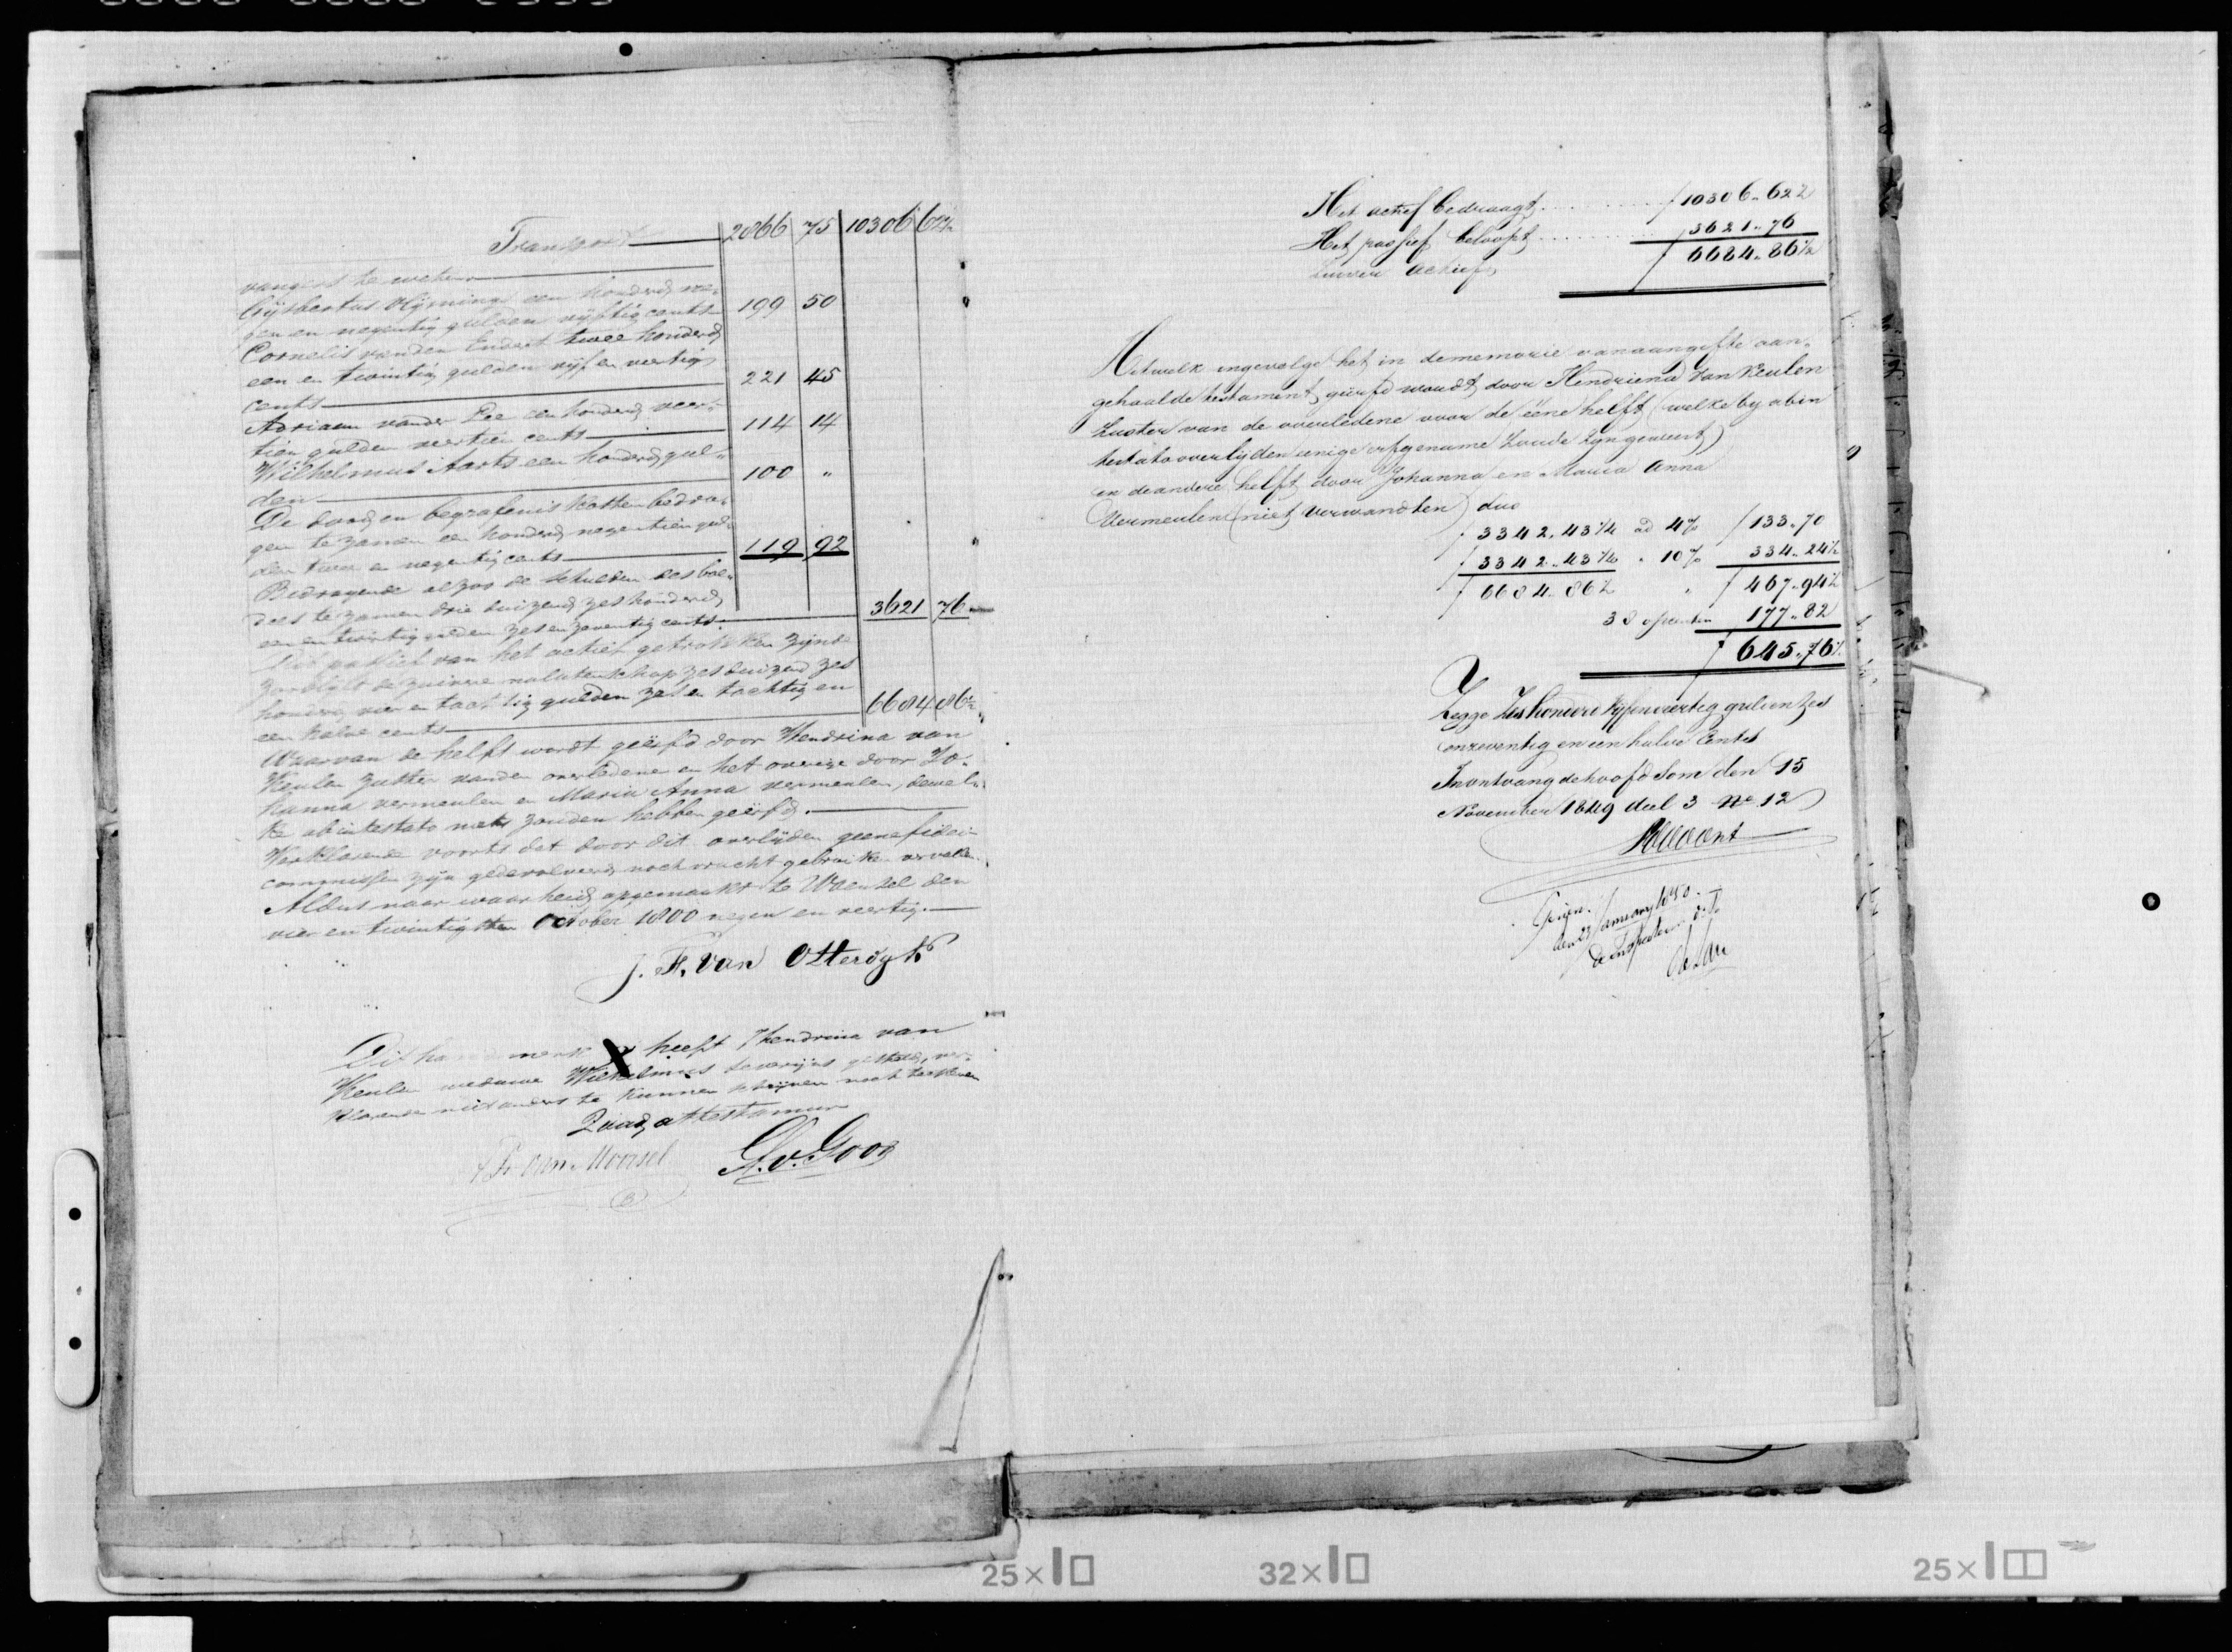 Transport 2866 75 10306 62½
vangers te weten
Gijsbertus Vlijminge een honderd ne-
gen en negentig gulden vijftig cents 199 50
Cornelis van den Endert twee honderd
een en twintig gulden vijf en veertig
cents 221 45
Adriaan vander Lee een honderd veer-
tien gulden veertien cents 114 14
Wilhelmus Aarts een honderd gul-
den 100 "
De dood en begrafenis kosten bedra-
gen te zamen een honderd negentien gul-
den twee en negentig cents 119 92
Bedragende alzoo de schulden des boe-
dels te zamen drie duizend zes honderd
een en twintig gulden zes en zeventig cents 3621 76
Het passief van het actief getrokken zijnde
zoo blijft de zuivere nalatenschap zes duizend zes
honderd vier en tachtig gulden zes en tachtig en
een halve cents 6684 86½
Waarvan de helft wordt geërfd door Hendrina van
Keulen zuster vanden overledene en het overige door Jo-
hanna vermeulen en Maria Anna vermeulen, dewel-
ke abintestato niets zouden hebben geërfd.
Verklarende voorts dat door dit overlijden geene fidei
commissen zijn gedevolveerd noch vrucht gebruiken vervallen.
Aldus naar waarheid opgemaakt te Woensel den
vier en twintigsten October 1800 negen en veertig.
J. F. van Otterdyk
Dit hand merk X heeft Hendrina van
Keulen weduwe Wilhelmus gesteld, ver-
klarende niet anders te kunnen schrijven noch teekenen
Quod attestamur
van Moorsel G. v. Goog
Het actief bedraagt f 10306.62½
Het passief beloopt 3621.76
Zuiver actief f 6684.86½
Hetwelk ingevolge het in dememorie vanaangifte aan-
gehaalde testament, geërfd wordt door Hendriena Van Keulen
Zuster van de overledene voor de ééne helft (welke by abin
testato overlyden eenige erfgename Zoude Zyn geweest)
en deandere helft door Johanna en Maria Anna
Vermeulen (niet verwandten) dus
f 3342.43¼ ad 4% f 133.70
f 3342.43¼ " 10% 334.24½
f 6684.86½ " f 467.94½
38 opcenten 177.82
f 645.76½
Zegge Zes honderd Vyfenveertig gulden Zes
enzeventig en een halve Cents
In ontvang dehoofd Som den 15
November 1849 deel 3 No 12
Gezien
den 23 January 1850.
de Inspecteur
25×
32×
25×